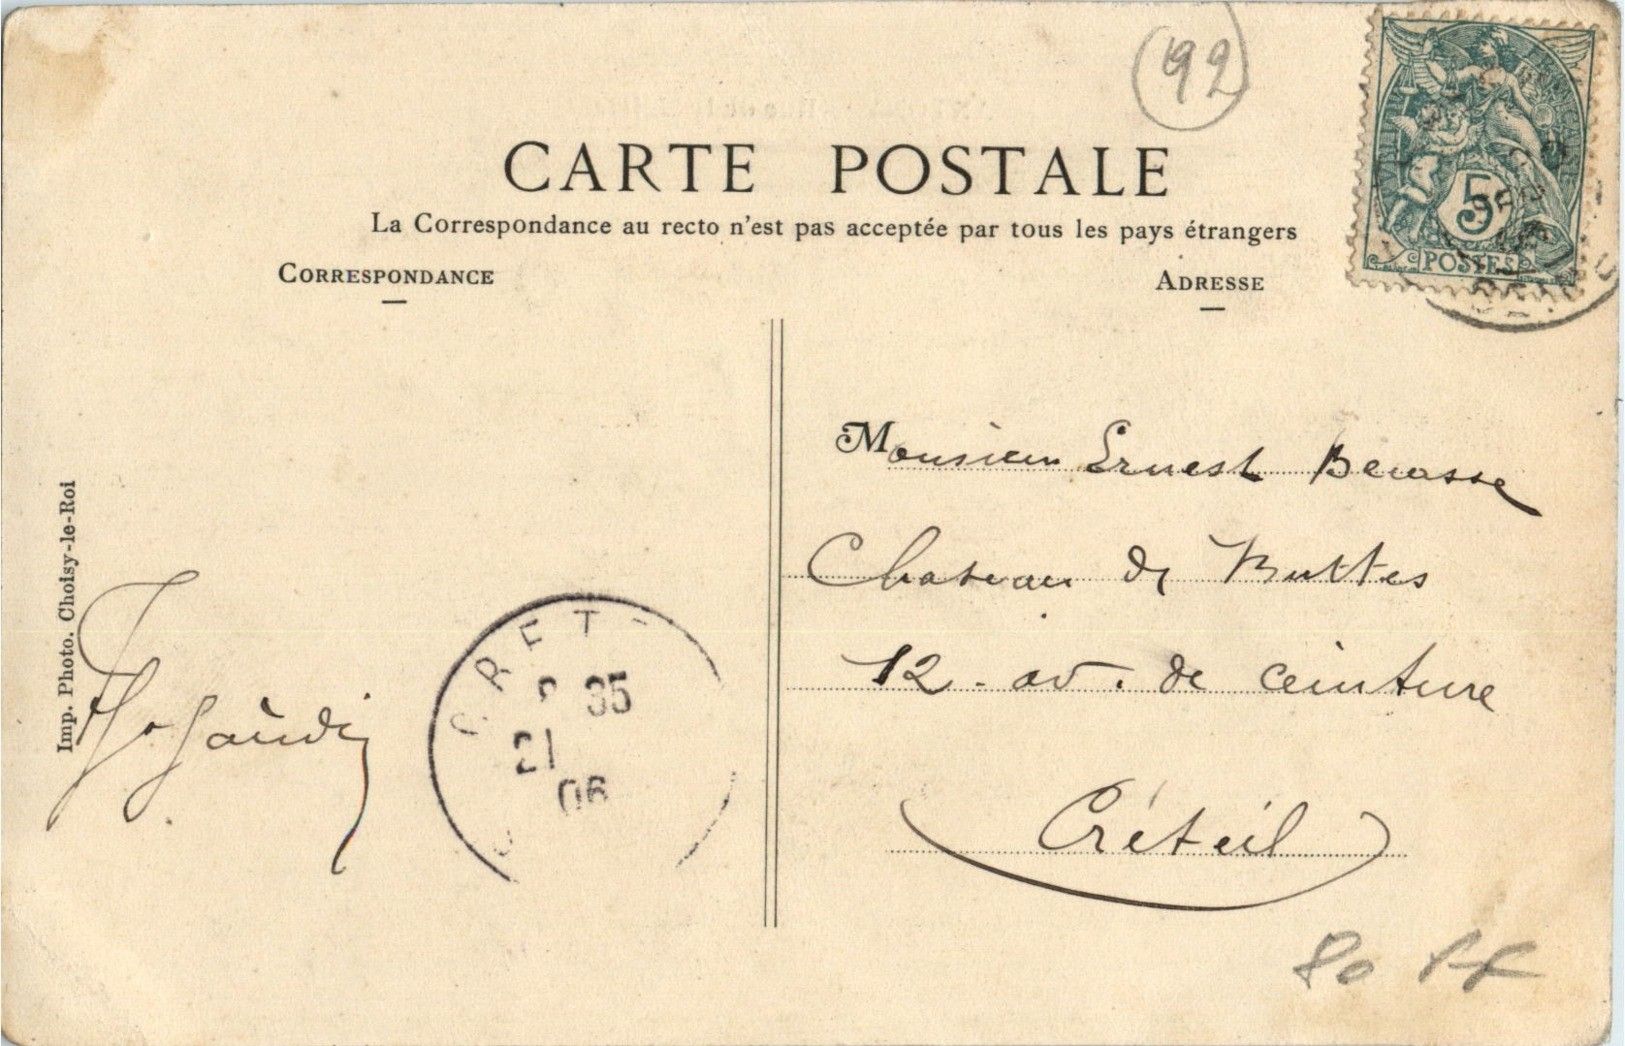 92
CARTE POSTALE
La Correspondance au recto n'est pas acceptée par tous les pays étrangers
CORRESPONDANCE
ADRESSE
5
POSTES
Monsieur Ernest Becasse
Chateau des Buttes
12 - av. de Ceinture
Créteil
Imp. Photo. Choisy-le-Roi
CRET
35
21
06
80 FF